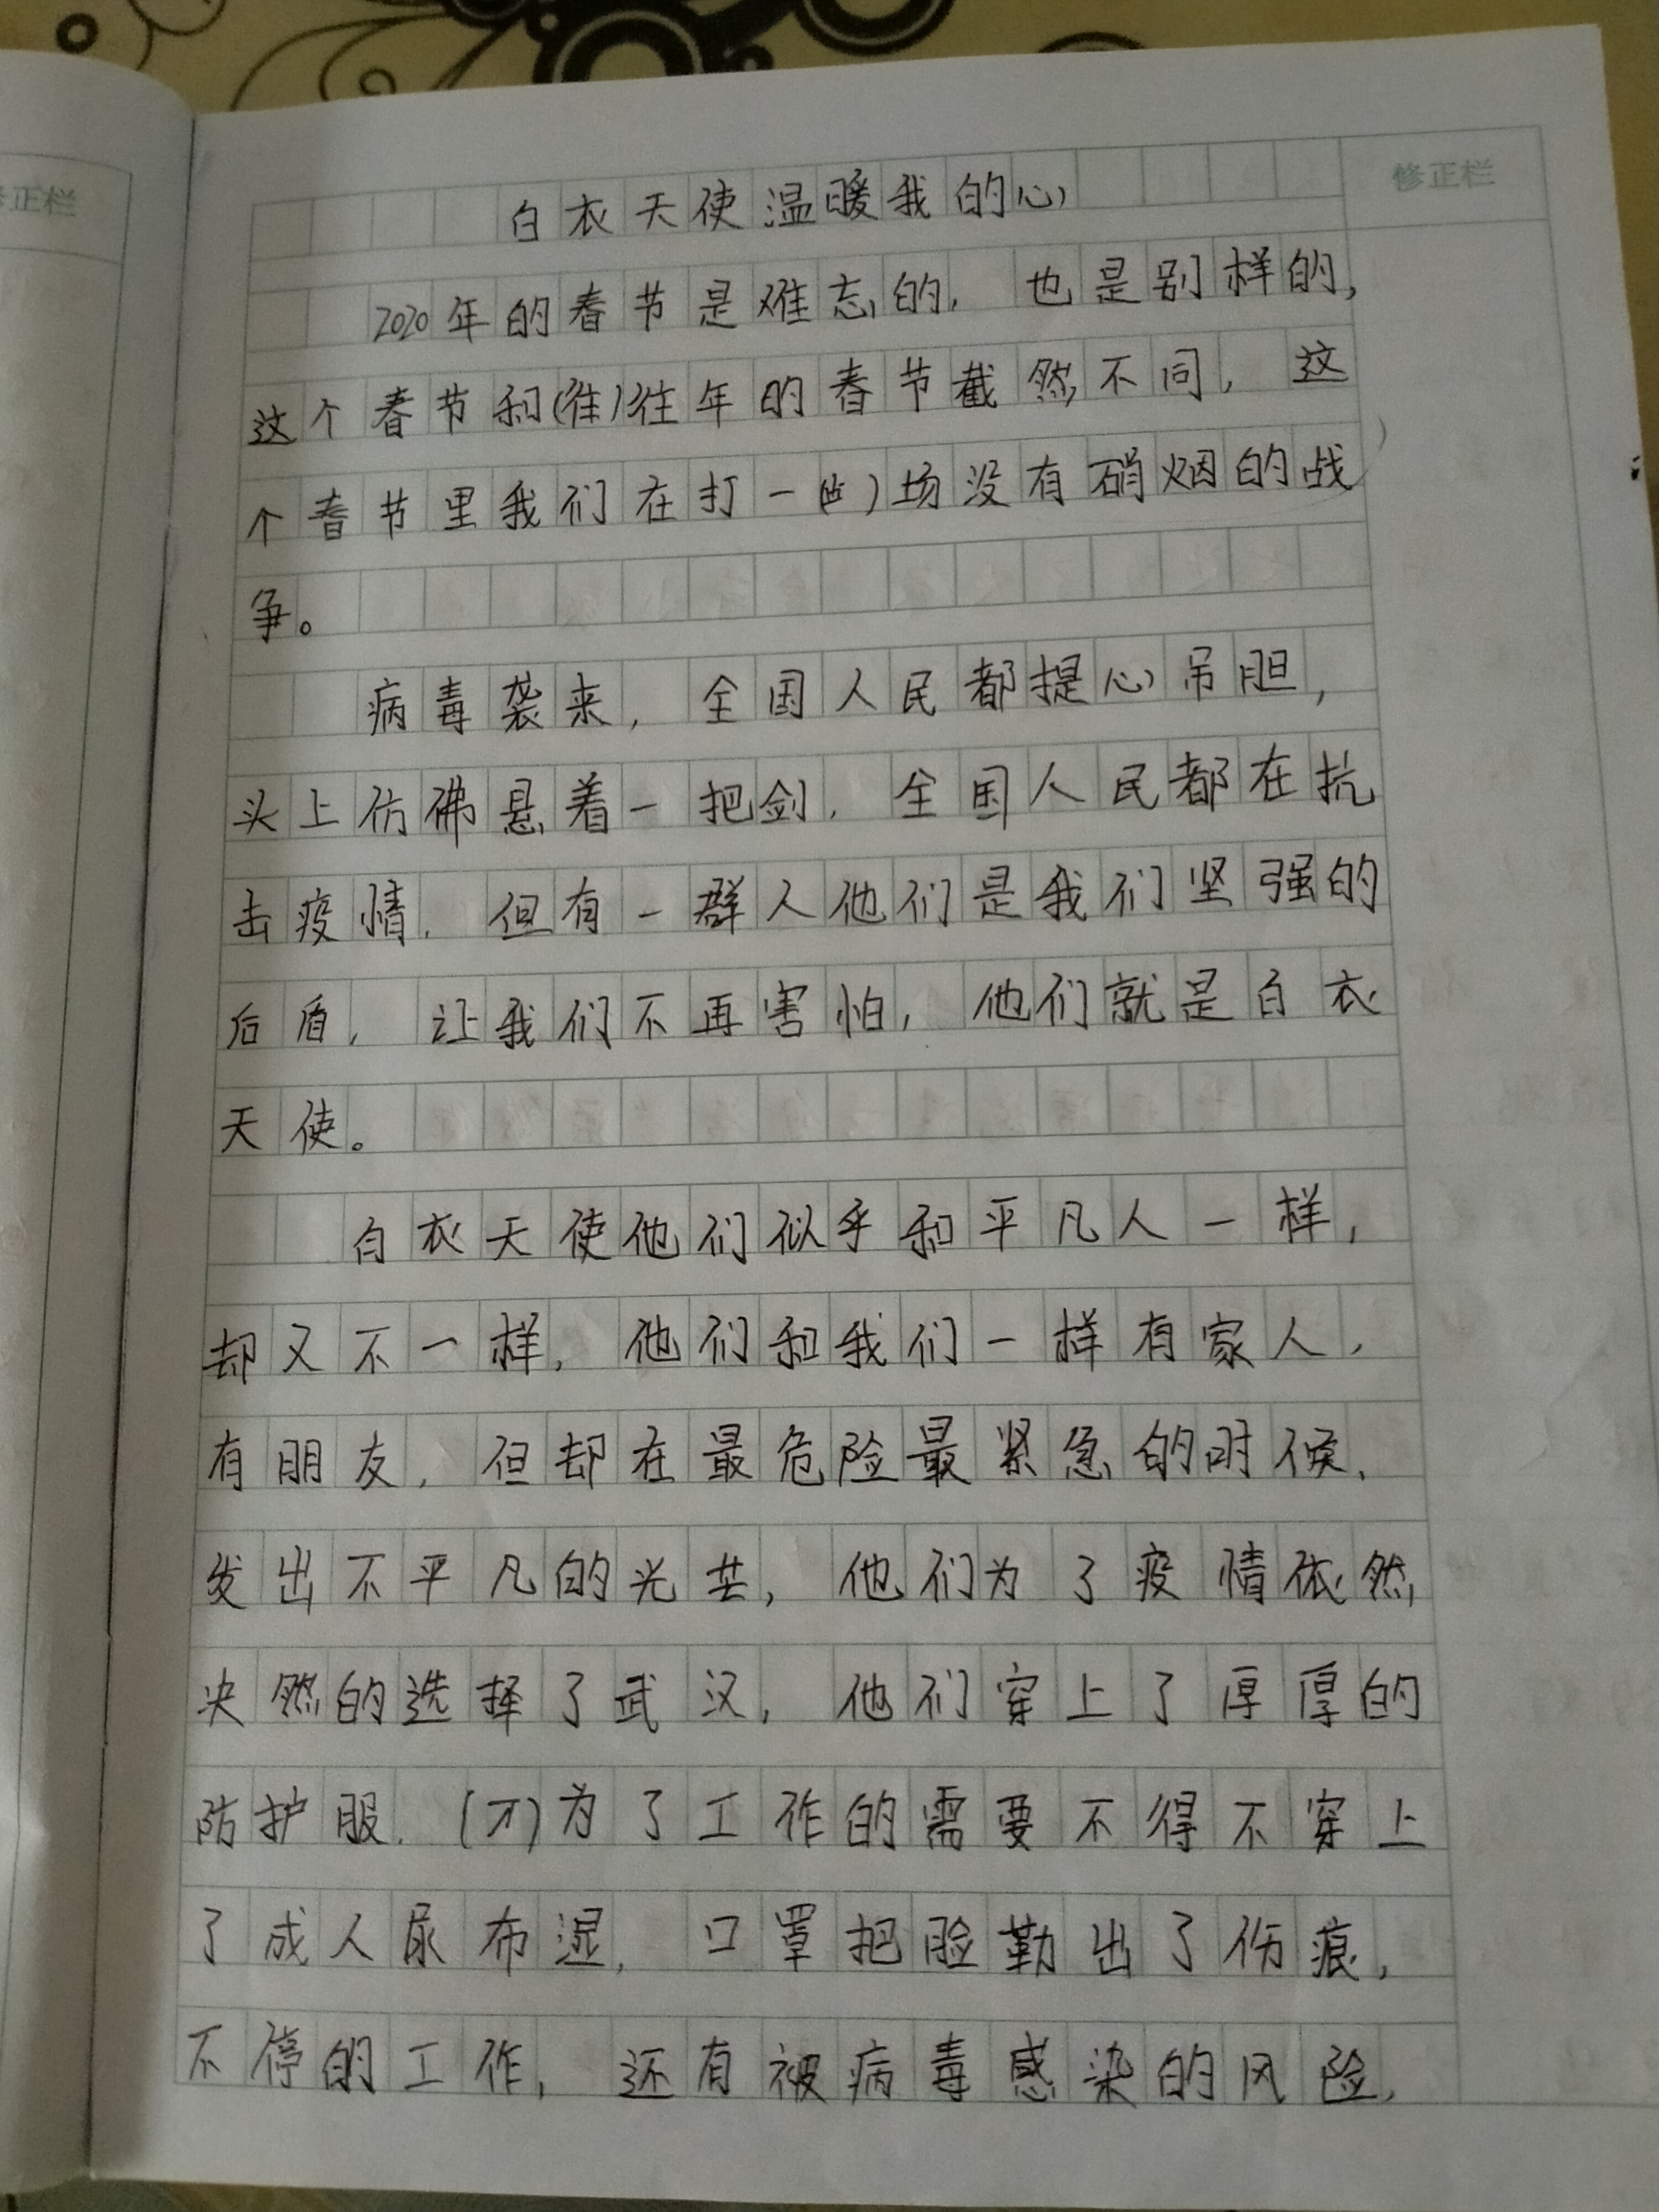 修正栏
修正栏
白衣天使温暖我的心
2020年的春节是难忘的，也是别样的，
这个春节和(往)往年的春节截然不同，这
个春节里我们在打一()场没有硝烟的战
争。
病毒袭来，全国人民都提心吊胆，
头上仿佛悬着一把剑，全国人民都在抗
击疫情，但有一群人他们是我们坚强的
后盾，让我们不再害怕，他们就是白衣
天使。
白衣天使他们似乎和平凡人一样，
却又不一样，他们和我们一样有家人，
有朋友，但却在最危险最紧急的时候，
发出不平凡的光芒，他们为了疫情依然
决然的选择了武汉，他们穿上了厚厚的
防护服，(才)为了工作的需要不得不穿上
了成人尿布湿，口罩把脸勒出了伤痕，
不停的工作，还有被病毒感染的风险，